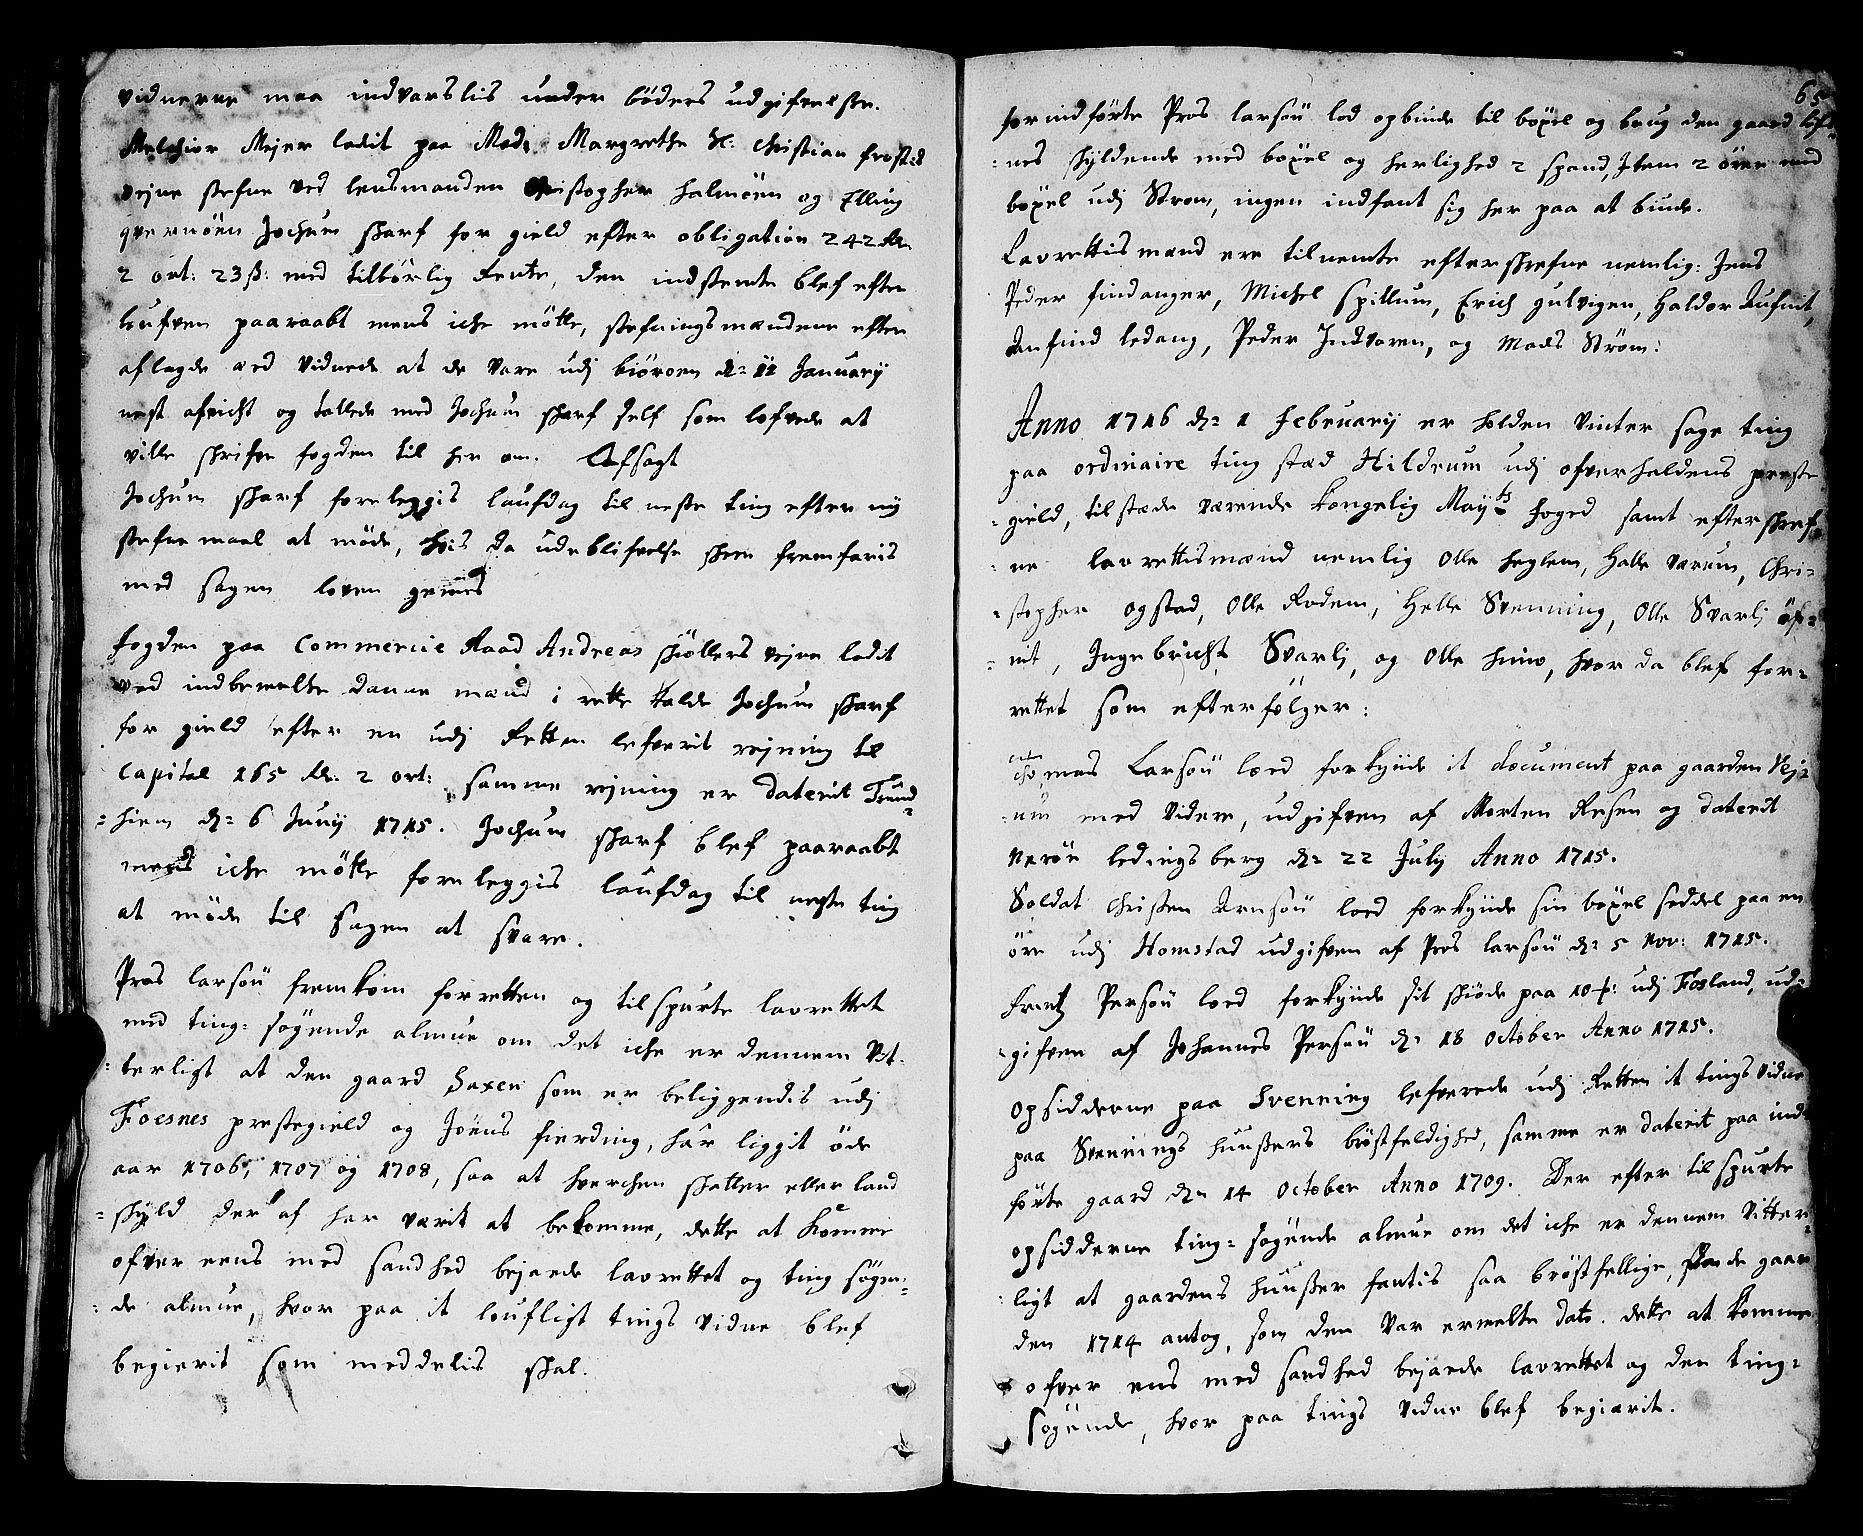 vidnerne maa indvarslis under böders udgifvelsse.
Melchior Mejer ladit paa Mad: Margrethe Sl: Christian frostis
vejne stefne ved lensmanden Christopher halmöen og Elling
qvernöen Jochum skarf for gield efter obligation 242 Rdr
2 ort: 23 ß: med tilbörlig Rente, den indstemte blef efter
loufven paaraabt mens iche mötte, stefningsmændene efter
aflagde æd vidnede at de vare udj biöroen d: 11 January
nest afvicht og tallede med Jochum skarf self som lofvede at
ville skrifve fogden til her om. Afsagt
Jochum skarf foreleggis laufdag til neste ting efter ny
stefnemaal at möde, hvis da udeblifvelse skeer fremfaris
med sagen loven gemes
fogden paa Commercie Raad Andreas skiöllers vejne ladit
ved indbemelte danne mænd i rette kalde Jochum skarf
for gield efter en udj Retten lefverit rejning til
Capital 165 Rdr: 2 ort: samme rejning er daterit Trund-
=hiem d: 6 Juny 1715. Jochum skarf blef paaraabt
mens iche mötte foreleggis laufdag til neste ting
at möde til sagen at svare.
Pros larsön fremkom forretten og tilspurte lavrettet
med ting=sögende almue om det iche er dennem Vit-
=terligt at den gaard Saxen som er beliggendis udj
Foesnes prestegield og Jöens fierding, har liggit öde
aar 1706, 1707 og 1708, saa at hverchen skatter eller land
=skyld der af har værit at bekomme, dette at komme
ofver eens med sandhed bejaede lavrettet og ting sögen=
=de almue, hvor paa it loufligt tings vidne blef
begierit som meddelis skal.
65
forindförte Pros larsön lod opbiude til böxel og brug den gaard
=nes skyldende med böxel og herlighed 2 spand, Item 2 örer med
böxel udj Strom, ingen indfant sig her paa at biude.
Lavrettismænd ere tilnemte efterskrefne nemlig: Jens
Peder findanger, Michel spillum, Erich gulvigen, Haldor Aufnit,
Anfind ledang, Peder Indvoren, og Mads Ström:
Anno 1716 d: 1 February er holden vinter sage ting
paa ordinaire ting stæd Hildrum udj ofverhaldens preste
=gield, tilstæde værende kongelig Mayts foged samt efterskref-
=ne lavrettismænd nemlig Olle heglem, Halle værum, Chri=
=stopher ogstad, Olle Rodem, Helle Svenning, Olle Svarlj öf=
=nit, Ingebricht Svarlj, og Olle himo, hvor da blef for=
rettet som efterfölger:
Thomas Larsön loed forkynde it document paa gaarden Vej=
=um med videre, udgifven af Morten Resen og daterit
Neröe ledingsberg d: 22 July Anno 1715.
Soldat Christen Arnsön loed forkynde sin böxel seddel paa en
öre udj Homstad udgifven af Pros larsön d: 5 Nov: 1715.
Frantz Persön loed forkynde sit skiöde paa 10 udj Fosland, ud=
=gifven af Johannes Persön d: 18 October Anno 1715.
Opsidderne paa Svenning lefverede udj Retten it tings vidne
paa Svennings huussers bröstfeldighed, samme er daterit paa ind
förte gaard d: 14 October Anno 1709. Der efter tilspurte
opsidderne ting=sögende almue om det iche er dennem vitter=
=ligt at gaardens huusser fantis saa bröstfellige, der de gaar
den 1714 antog, som den var ermelte dato. dette at komme
ofver ens med sandhed bejaede lavrettet og den ting=
sögende, hvor paa tings vidne blef begiærit.